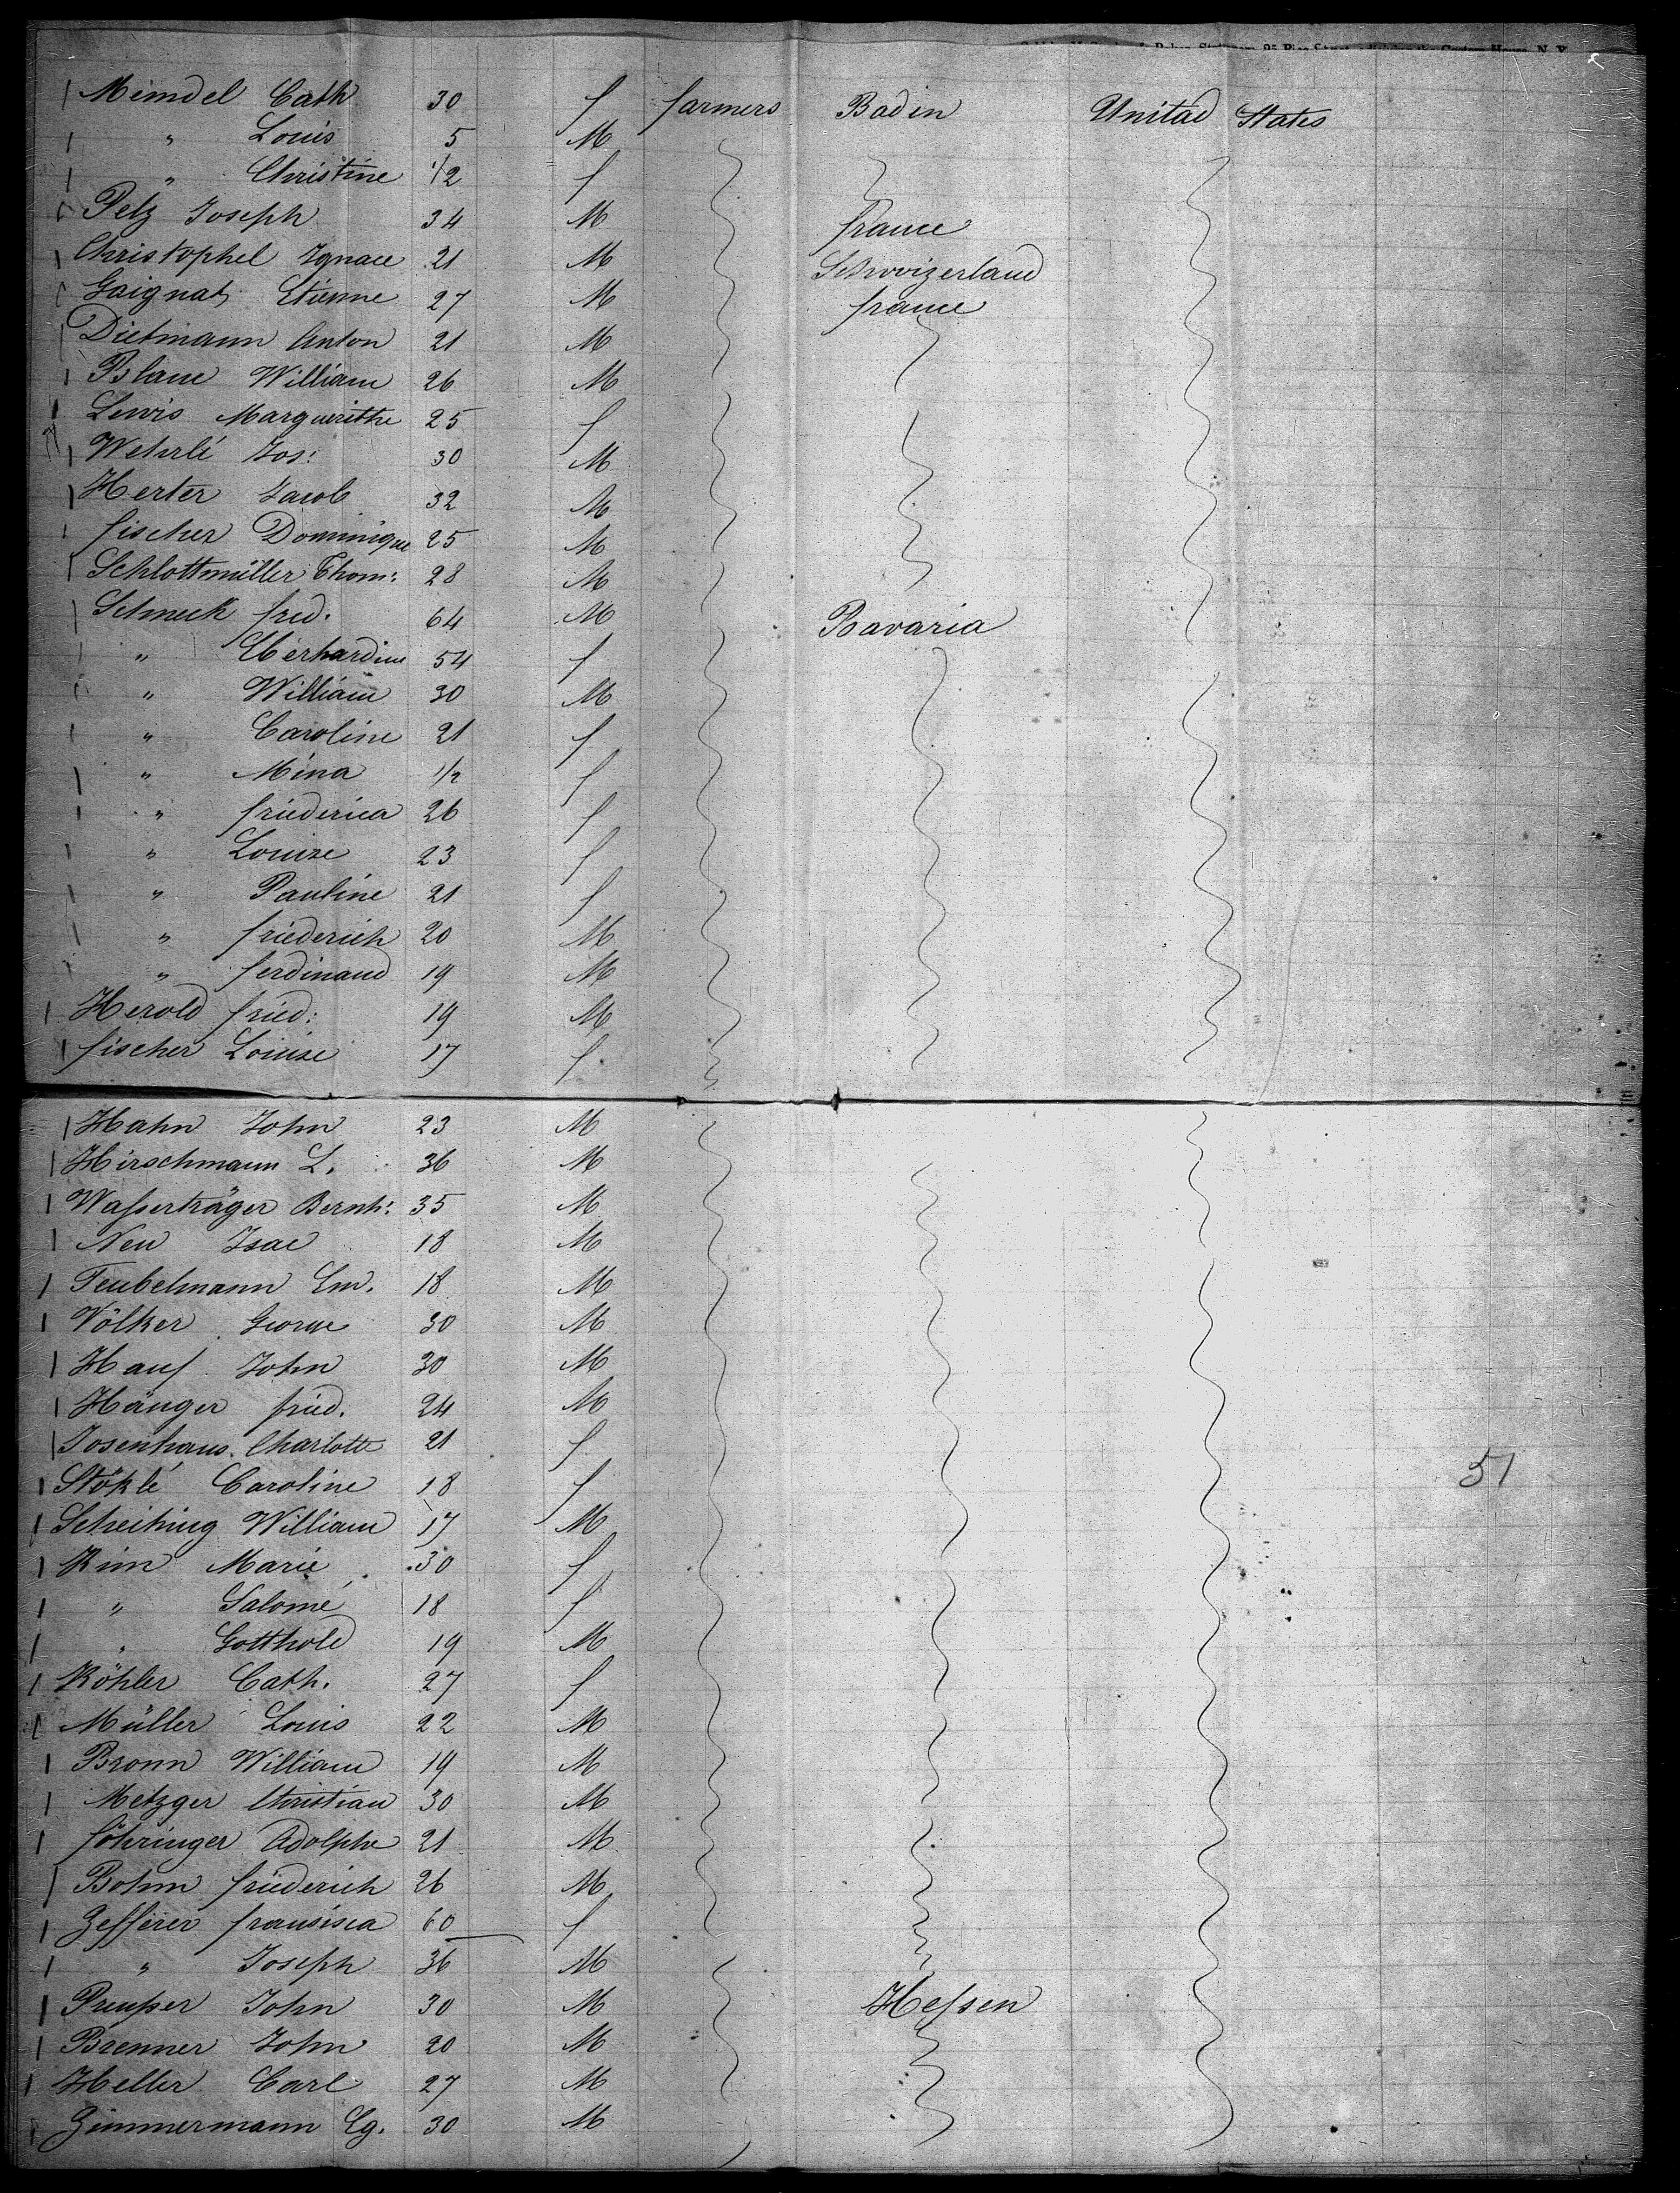 Meindel Cath 30 f farmers Baden Unitad States
" Louis 5 M
" Christine 1/2 f
Pelz Joseph 34 M france
Christophel Ignace 21 M Schwizerland
Gaignat Etienne 27 M france
Dietmann Anton 21 M
Blanc William 26 M
Lewis Marguerithe 25 f
Wehrlé Jos: 30 M
Herter Jacob 32 M
fischer Dominique 25 M
Schlottmüller Thom: 28 M
Schmeck fred. 64 M Bavaria
" Eberhardine 54 f
" William 30 M
" Caroline 21 f
" Mina 1/2 f
" friederica 26 f
" Louise 23 f
" Pauline 21 f
" friederich 20 M
" ferdinand 19 M
Herold fried: 19 M
fischer Louise 17 f
Hahn John 23 M
Hirschmann L. 36 M
Wasserträger Bernh: 35 M
Neu Isac 18 M
Teubelmann Em. 18 M
Völker George 30 M
Hauf John 30 M
Hänger fried. 24 M
Josenhaus Charlotte 21 f
Stöklé Caroline 18 f 51
Scheihing William 17 M
Kim Marie 30 f
" Salomé 18 f
" Gotthold 19 M
Köhler Cath. 27 f
Müller Louis 22 M
Bronn William 19 M
Metzger Christian 30 M
föhringer Adolphe 21 M
Bohm friederich 26 M
Zefferer fransisca 60 f
" Joseph 36 M
Preusser John 30 M Hessen
Brenner John 20 M
Heller Carl 27 M
Zimmermann Eg. 30 M